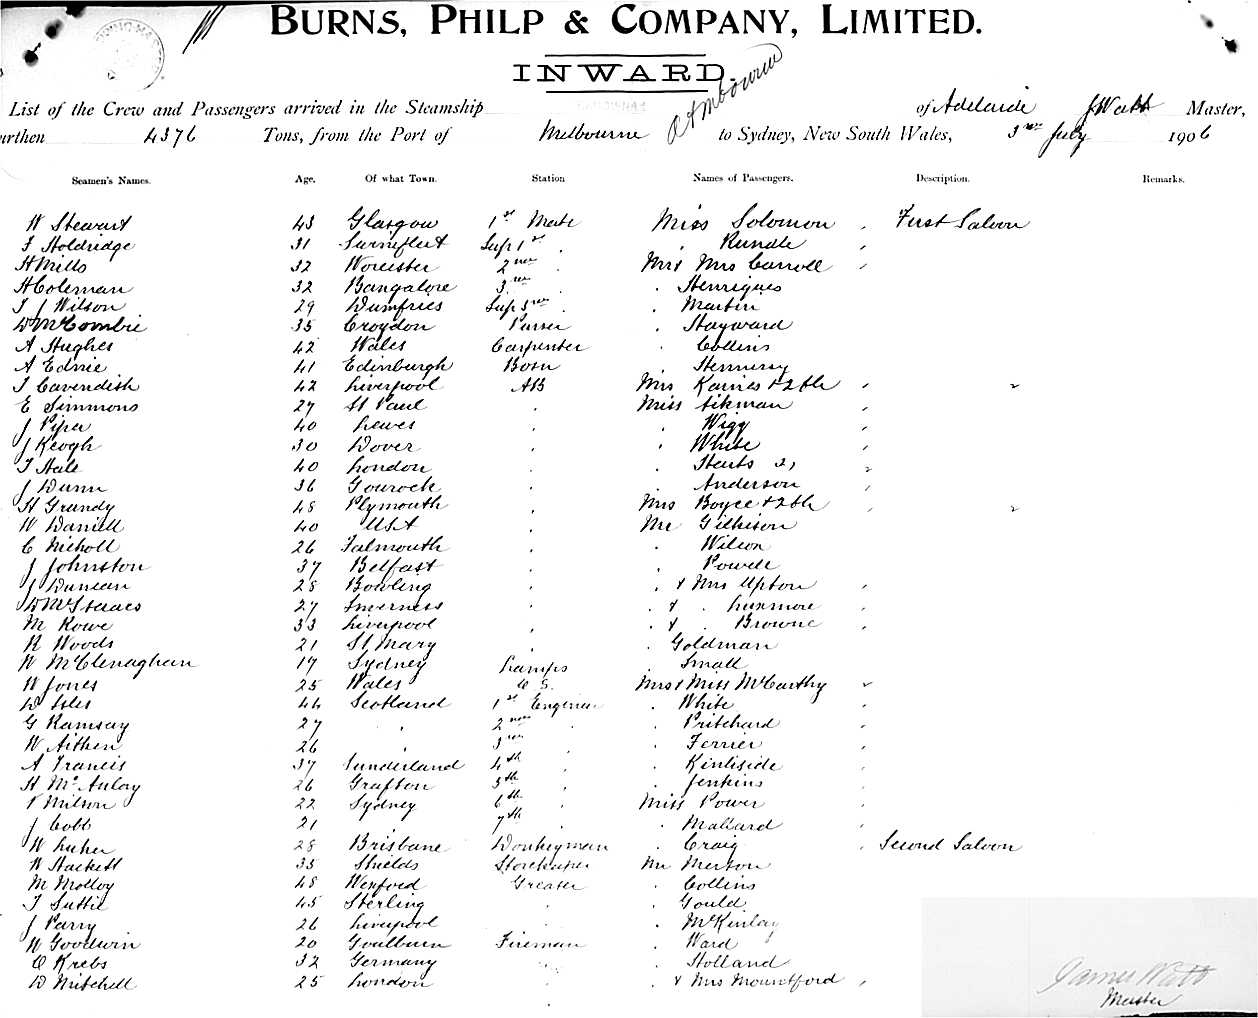 BURNS, PHILP & COMPANY, LIMITED.
INWARD.
List of the Crew and Passengers arrived in the Steamship of Adelaide J Watt Master,
urthen 4376 Tons, from the Port of Melbourne to Sydney, New South Wales, 3rd July 1906
Seamen's Names. Age. Of what Town. Station Names of Passengers. Description. Remarks.
W Stewart 43 Glasgow 1st Mate Miss Solomon , First Saloon
F Holdridge 31 Surfleet Sup 1st . . Rundle ,
H Mills 32 Worcester 2nd . Mr & Mrs Carroll ,
H Coleman 32 Bangalore 3rd . Henriques
T J Wilson 29 Dumfries Sup 3rd . . Martin
D McCombie 35 Croydon Purser . Hayward
A Hughes 42 Wales Carpenter . Collins
A Edme 41 Edinburgh Bosn . Hennessy
T Cavendish 42 Liverpool AB Mrs Karnes & 2 Ch , 2
E Simmons 27 St Paul . Miss Aikman ,
J Piper 40 Lewes . . Wigg ,
J Keogh 30 Dover . . White ,
T Hale 40 London . . Hents 2, 2
J Dunn 36 Gourock . . Anderson ,
H Grundy 48 Plymouth . Mrs Boyce & 2 Ch , 2
W Daniell 40 USA . Mr Gilkison
C Nicholl 26 Falmouth . . Wilson
J Johnston 37 Belfast . . Powell
J Duncan 28 Bowling . . & Mrs Upton ,
D McIsaacs 27 Inverness . . & . Luxmore ,
M Rowe 33 Liverpool . . & . Browne ,
R Woods 21 St Mary . . Goldman
W McClenaghan 17 Sydney Lamps . Small
W Jones 25 Wales O S. Mrs & Miss McCarthy 2
D Isles 46 Scotland 1st Engineer . White ,
G Ramsay 27 . 2nd . . Pritchard ,
W Aitken 26 . 3rd . Ferrier ,
A Francis 37 Sunderland 4th . . Kinliside ,
H McAulay 26 Grafton 5th . . Jenkins ,
V Milson 22 Sydney 6th . Miss Power ,
J Cobb 21 7th . . Mallard ,
W Luher 28 Brisbane Donkeyman . Craig , Second Saloon
W Hackett 33 Shields Storekeeper Mr Merton
M Molloy 48 Wexford Greaser . Collins
T Suttie 45 Sterling . . Gould
J Parry 26 Liverpool . . McKinlay
W Goodwin 20 Goulburn Fireman . Ward
O Krebs 32 Germany . . Holland
D Mitchell 25 London . . & Mrs Mountford ,
James Watt
Master